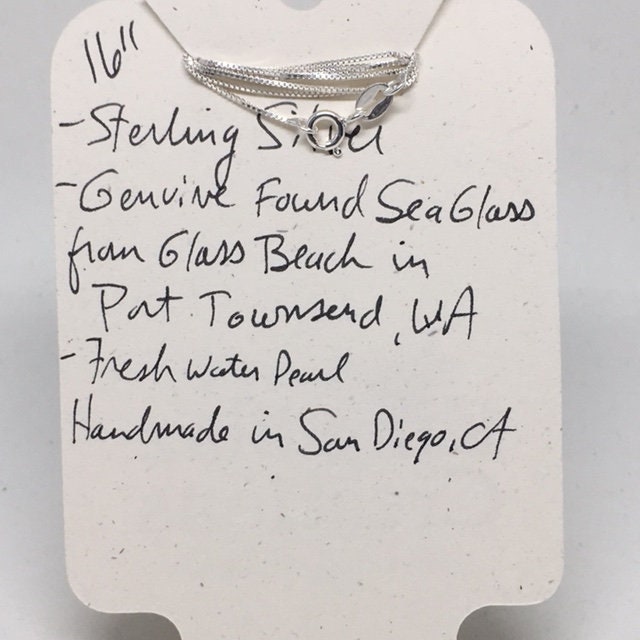 16"
- Sterling Silver
- Genuine Found Sea Glass
from Glass Beach in
Port Townsend, WA
- Fresh Water Pearl
Handmade in San Diego, CA